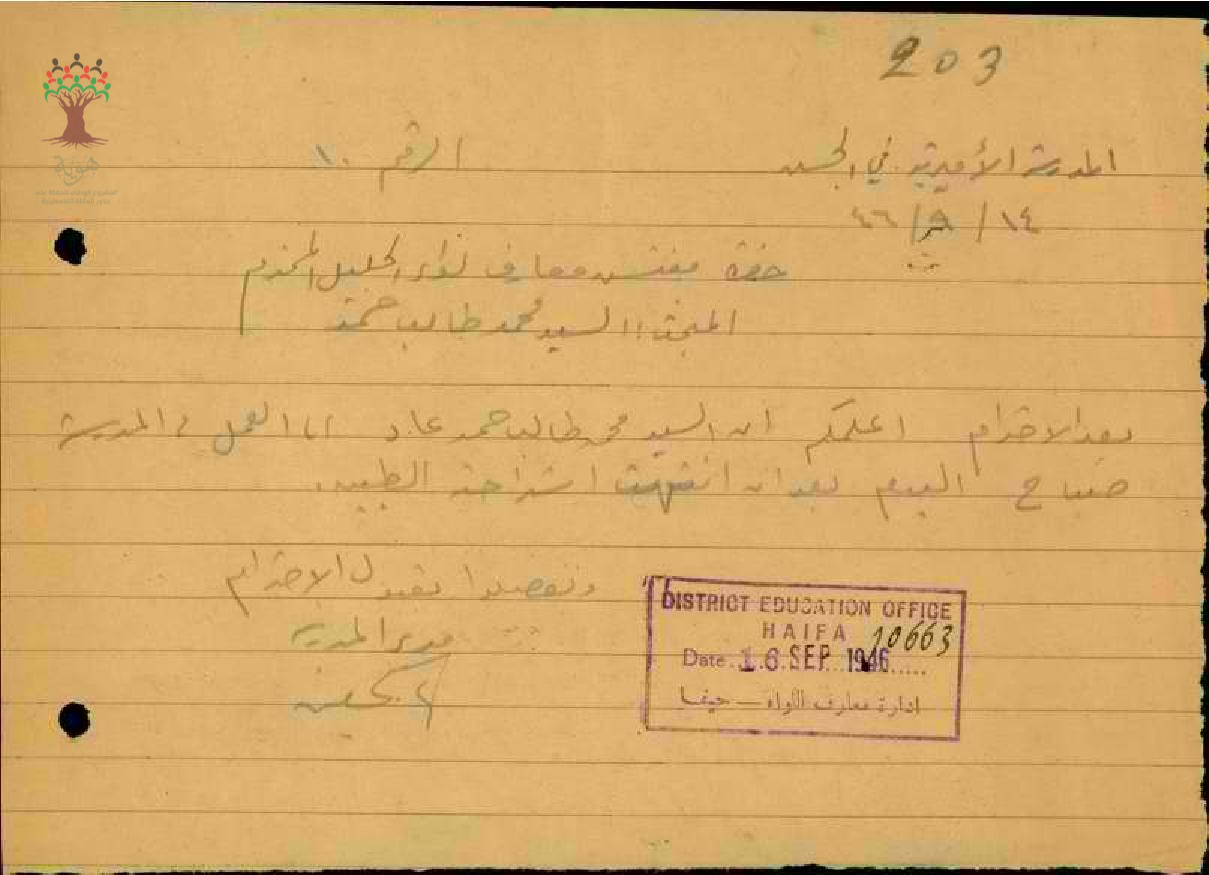 203
المدرسة الأميرية في
الرقم ١٠
١٤/٩/٤٦
حضرة مفتش معارف لواء الجليل المحترم
المبحث:: السيد محمد طالب حمد
بعد الاحترام اعلمكم ان السيد محمد طالب حمد عاد الى العمل في المدرسة
صباح اليوم بعد ان انتهت استراحته الطبية.
وتفضلوا بقبول الاحترام
مدير المدرسة
DISTRICT EDUCATION OFFICE
HAIFA 10663
Date 16 SEP 1946
ادارة معارف اللواء — حيفا
هوية